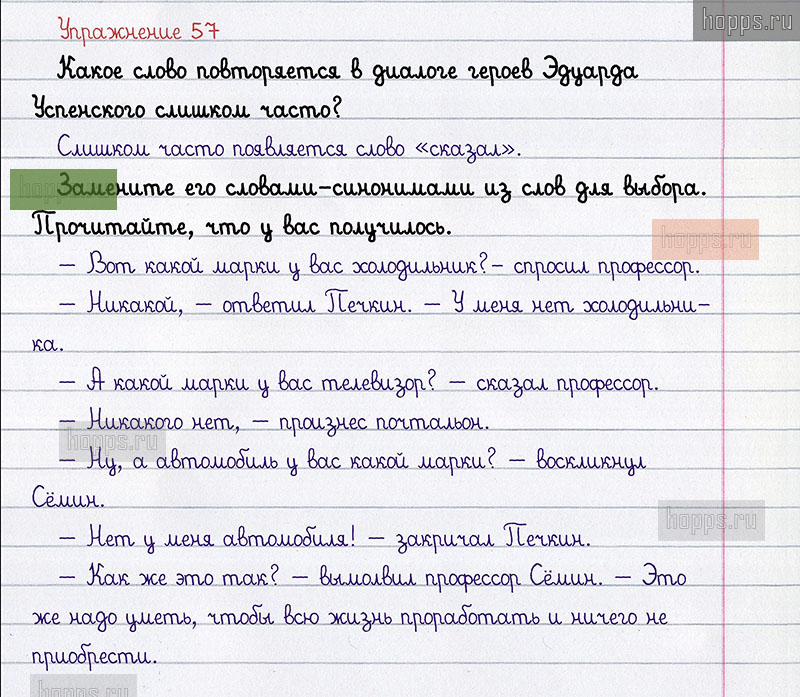 hopps.ru
Упражнение 57
Какое слово повторяется в диалоге героев Эдуарда
Успенского слишком часто?
Слишком часто появляется слово «сказал».
Замените его словами-синонимами из слов для выбора.
Прочитайте, что у вас получилось.
hopps.ru
— Вот какой марки у вас холодильник?– спросил профессор.
— Никакой, — ответил Печкин. — У меня нет холодильни-
ка.
— А какой марки у вас телевизор? — сказал профессор.
— Никакого нет, — произнес почтальон.
hopps.ru
— Ну, а автомобиль у вас какой марки? — воскликнул
Сёмин.
hopps.ru
— Нет у меня автомобиля! — закричал Печкин.
— Как же это так? — вымолвил профессор Сёмин. — Это
же надо уметь, чтобы всю жизнь проработать и ничего не
приобрести.
hopps.ru